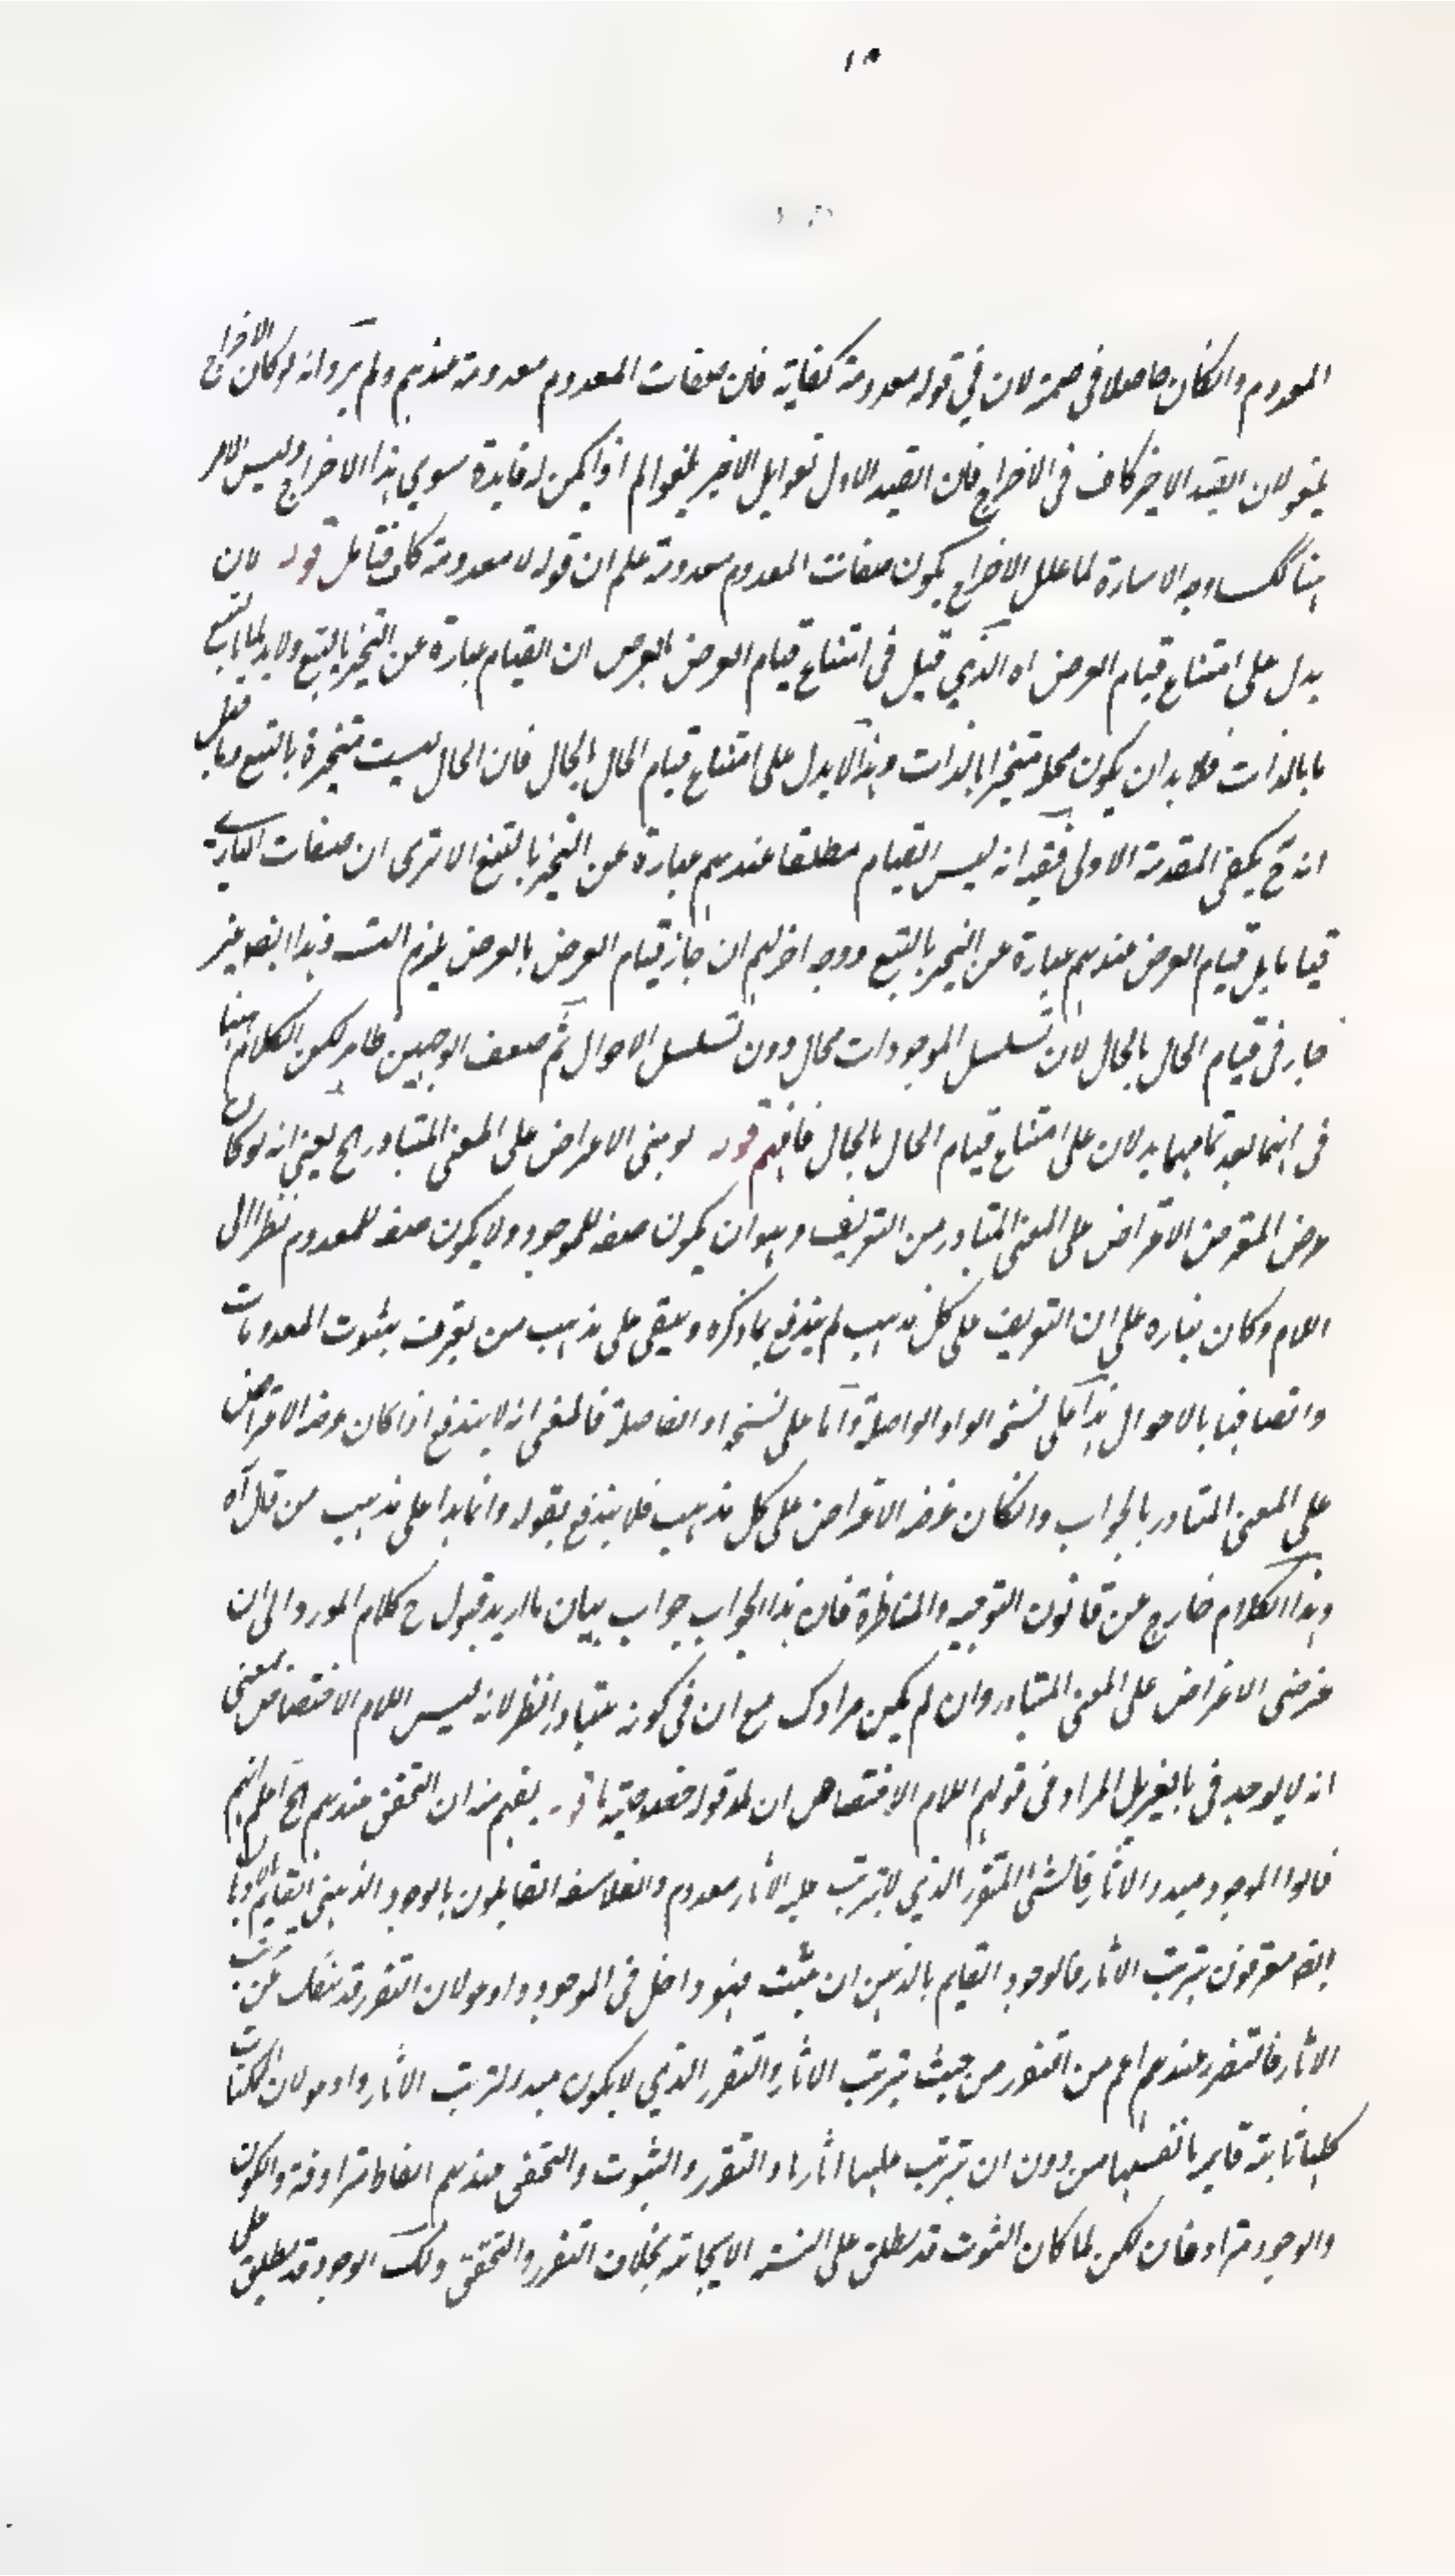 ١٥
المعدوم وانكان حاصلا فى ضمنه لان فى قوله معدومة كفاية فان صفات المعدوم معدومة عندهم ولم يرد انه لو كان الاخراج
يلغو لان القيد الاخير كاف فى الاخراج فان القيد الاول لغو بل الاخير يلغو الم اذا لم يكن له فايدة سوى هذا الاخراج وليس الامر
هنا كك وجه الاشارة لما علل الاخراج بكون صفات المعدوم معدومة علم ان قوله لا معدومة كاف فتامل قوله لان
يدل على امتناع قيام العرض اه الذي قيل فى امتناع قيام العرض بالعرض ان القيام عبارة عن التحيز بالتبع ولا بد لما بالتبع
ما بالذات فلا بد ان يكون محله متحيزا بالذات وهذا لا يدل على امتناع قيام الحال بالحال فان الحال ليست متحيزة بالتبع وما قيل
انه ح يكفى المقدمة الاولى ففيه انه ليس القيام مطلقا عندهم عبارة عن التحيز بالتبع الا ترى ان صفات البارى
قيام بل قيام العرض عندهم عبارة عن التحيز بالتبع ووجه اخر لهم ان جاز قيام العرض بالعرض يلزم التسـ وهذا ايضا غير
جار فى قيام الحال بالحال لان تسلسل الموجودات محال دون تسلسل الاحوال ثم ضعف الوجهين ظاهر لكن الكلام هنا
فى انهما بعد تمامهما يدلان على امتناع قيام الحال بالحال فافهم قوله لو بنى الاعراض على المعنى المتبادر الخ يعنى انه لو كان
غرض المعترض الاعتراض على المعنى المتبادر من التعريف وهو ان يكون صفة للموجود ولا يكون صفة للمعدوم نظرا الى
اللام وكان بناره على ان التعريف على كل مذهب لم يندفع بما ذكره ويبقى على مذهب من يعترف بثبوت المعدومات
واتصافها بالاحوال هذا على نسخة الواو الواصلة واما على نسخة او الفاصلة فالمعنى انه لا يندفع اذا كان غرضه الاعتراض
على المعنى المتبادر بالجواب وانكان غرضه الاعتراض على كل مذهب فلا يندفع بقوله وانما هذا على مذهب من قال آه
وهذا الكلام خارج عن قانون التوجيه والمناظرة فان هذا الجواب جواب ببيان ما اريد فيول ح كلام المورد الى ان
غرضى الاعتراض على المعنى المتبادر وان لم يكن مرادك مع ان فى كونه متبادرا نظر لانه ليس اللام الاختصاص بمعنى
انه لا يوجد فى بالغير بل المراد فى قولهم اللام الاختصاص ان لمدخوله خصوصية ما قوله يفهم منه ان التحقق عندهم الخ اعلم انهم
قالوا الموجود مبدء الاثار فالشئ المتقرر الذي لا يترتب عليه الاثار معدوم والفلاسفة القايلون بالوجود الذهنى القايم بالاذهان
ايضا معترفون بترتب الاثار فالوجود القايم بالذهن ان ثبت فهو داخل فى الموجود واومولان التقرر قد ينفك عن ترتب
الاثار فالتقرر عندهم اعم من التقرر من حيث يترتب الاثار والتقرر الذي لا يكون مبدء لترتب الاثار واومولان الممكنات
كلها ثابتة قايمة بانفسها من دون ان يترتب عليها اثارها والتقرر والثبوت والتحقق عندهم الفاظ مترادفة والكون
والوجود مترادفان لكن لما كان الثبوت قد يطلق على النسبة الايجابية بخلاف التقرر والتحقق وكك الوجود قد يطلق على